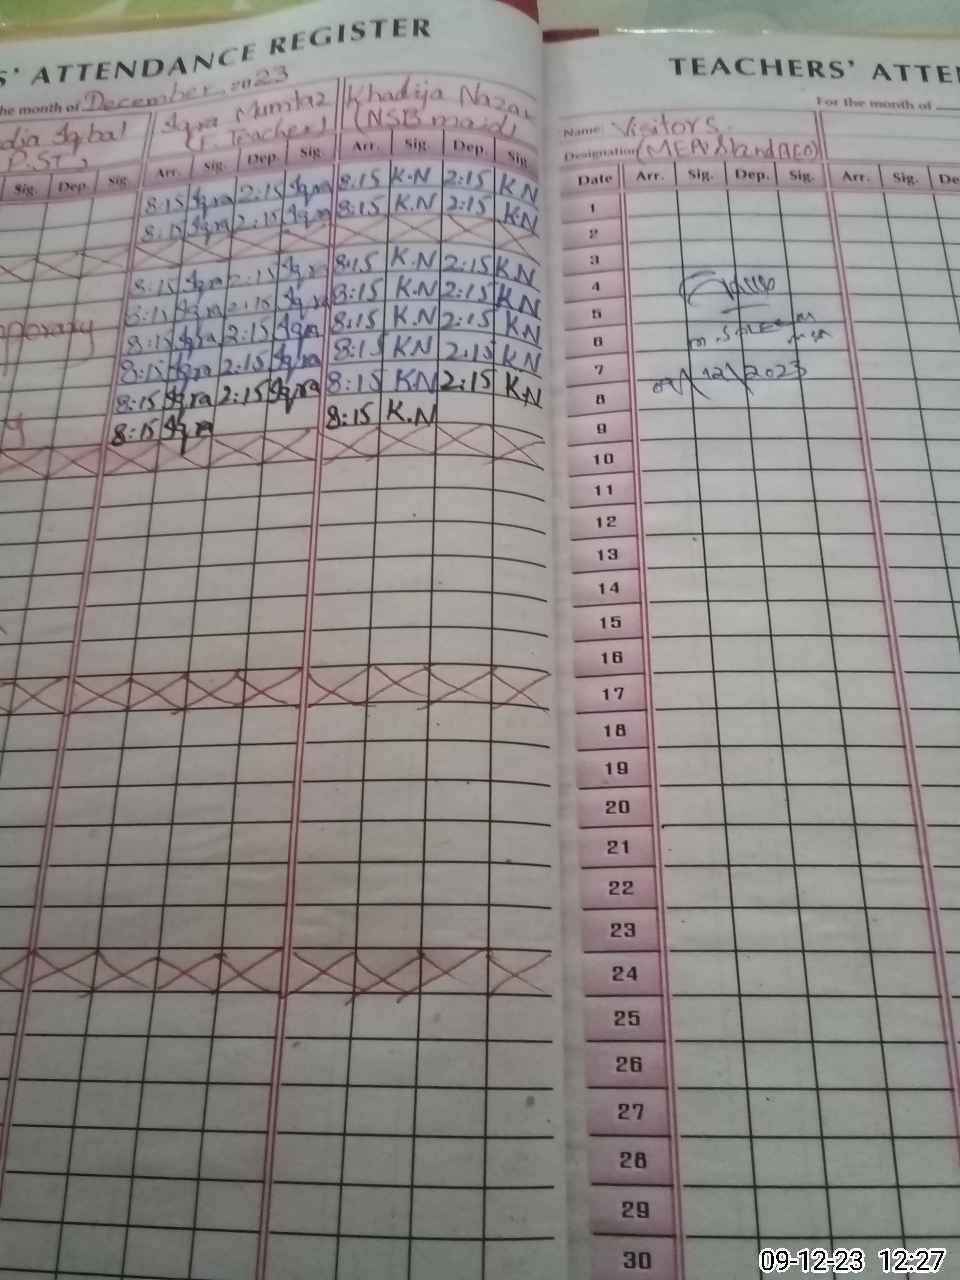 S' ATTENDANCE REGISTER
he month of December, 2023
dia Iqbal
P.ST)
Iqra Mumtaz
(P. Teacher)
Khadija Nazar
(NSB maid)
Sig. Dep. Sig. Arr. Sig. Dep. Sig. Arr. Sig. Dep. Sig.
8:15 Iqra 2:15 Iqra 8:15 K.N 2:15 KN
8:15 Iqra 2:15 Iqra 8:15 K.N 2:15 KN
8:15 Iqra 2:15 Iqra 8:15 K.N 2:15 K.N
8:15 Iqra 2:15 Iqra 8:15 K.N 2:15 KN
8:15 Iqra 2:15 Iqra 8:15 K.N 2:15 KN
8:15 Iqra 2:15 Iqra 8:15 KN 2:15 KN
8:15 Iqra 2:15 Iqra 8:15 KN 2:15 K.N
8:15 Iqra 8:15 K.N
TEACHERS' ATTE
For the month of
Name Visitors.
Designation
Date Arr. Sig. Dep. Sig. Arr. Sig. De
1
2
3
4
5
6
7
09/12/2023
8
9
10
11
12
13
14
15
16
17
18
19
20
21
22
23
24
25
26
27
28
29
30
09-12-23 12:27